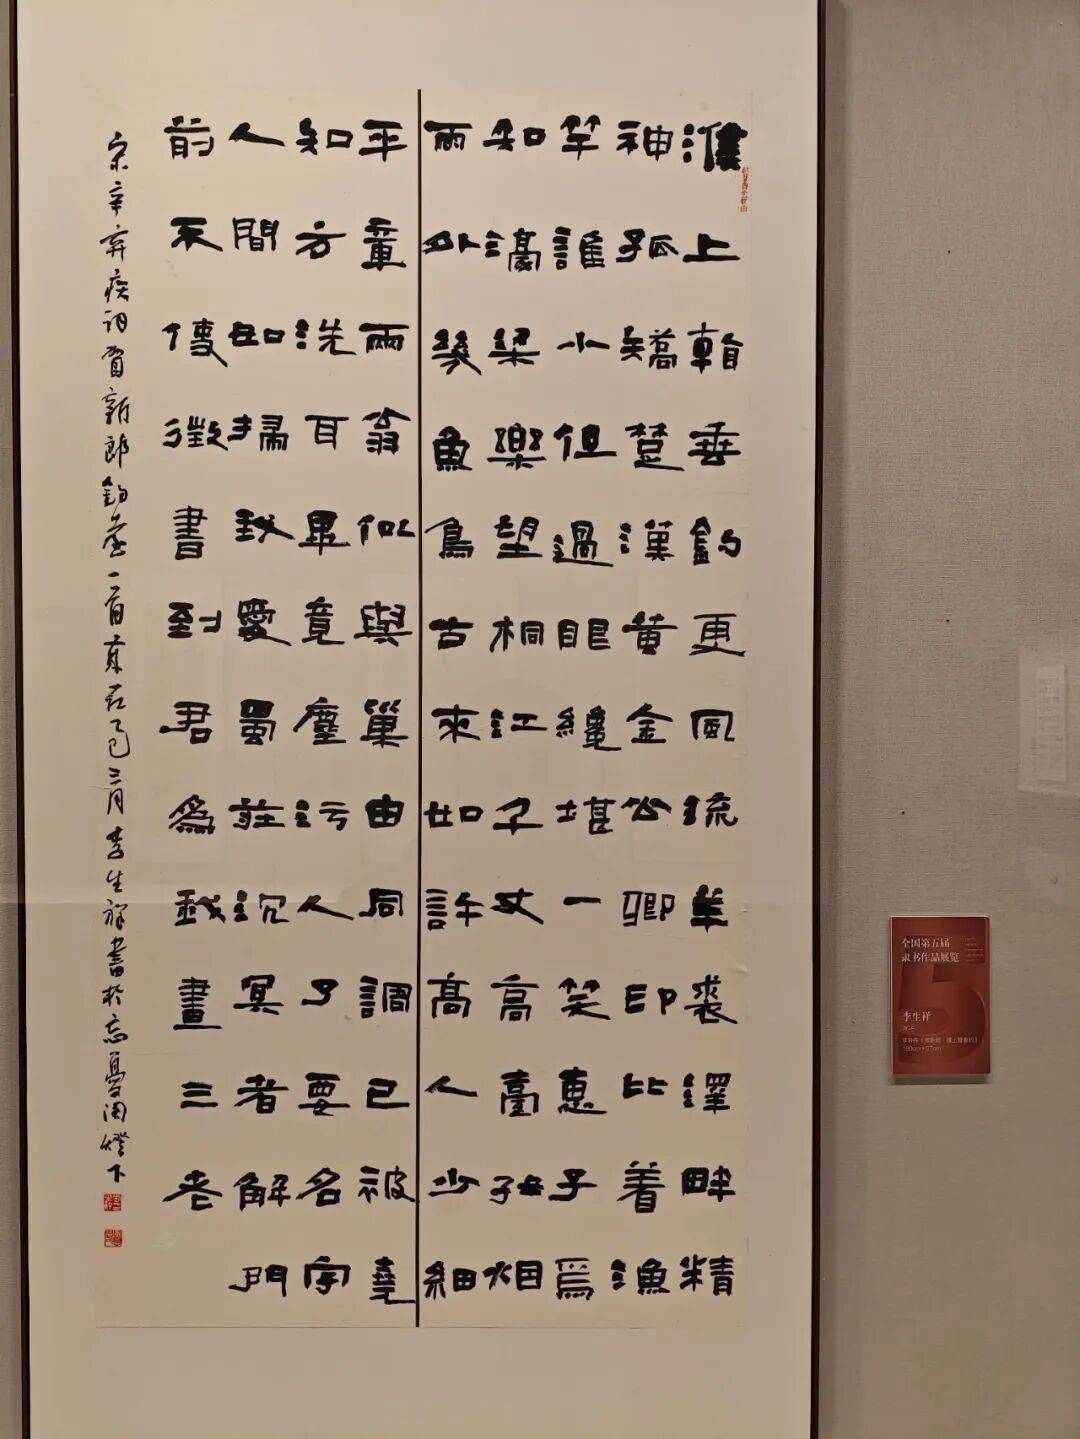 濮上看垂釣更風流羊裘澤畔精
神孤矯楚漢黃金公卿印比着漁
竿誰小但過眼纔堪一笑惠子焉
知濠梁樂望桐江千丈高臺好烟
雨外幾魚鳥古來如許高人少細
平章兩翁似與巢由同調已被堯
知方洗耳畢竟塵污人了要名字
人間如掃我愛蜀莊沉冥者解門
前不使徵書到君為我畫三老
宋辛弃疾詞賀新郎釣臺一首歲在乙巳三月李生祥書於忘憂閣燈下
全国第五届
隶书作品展览
5
李生祥
180cm×97cm